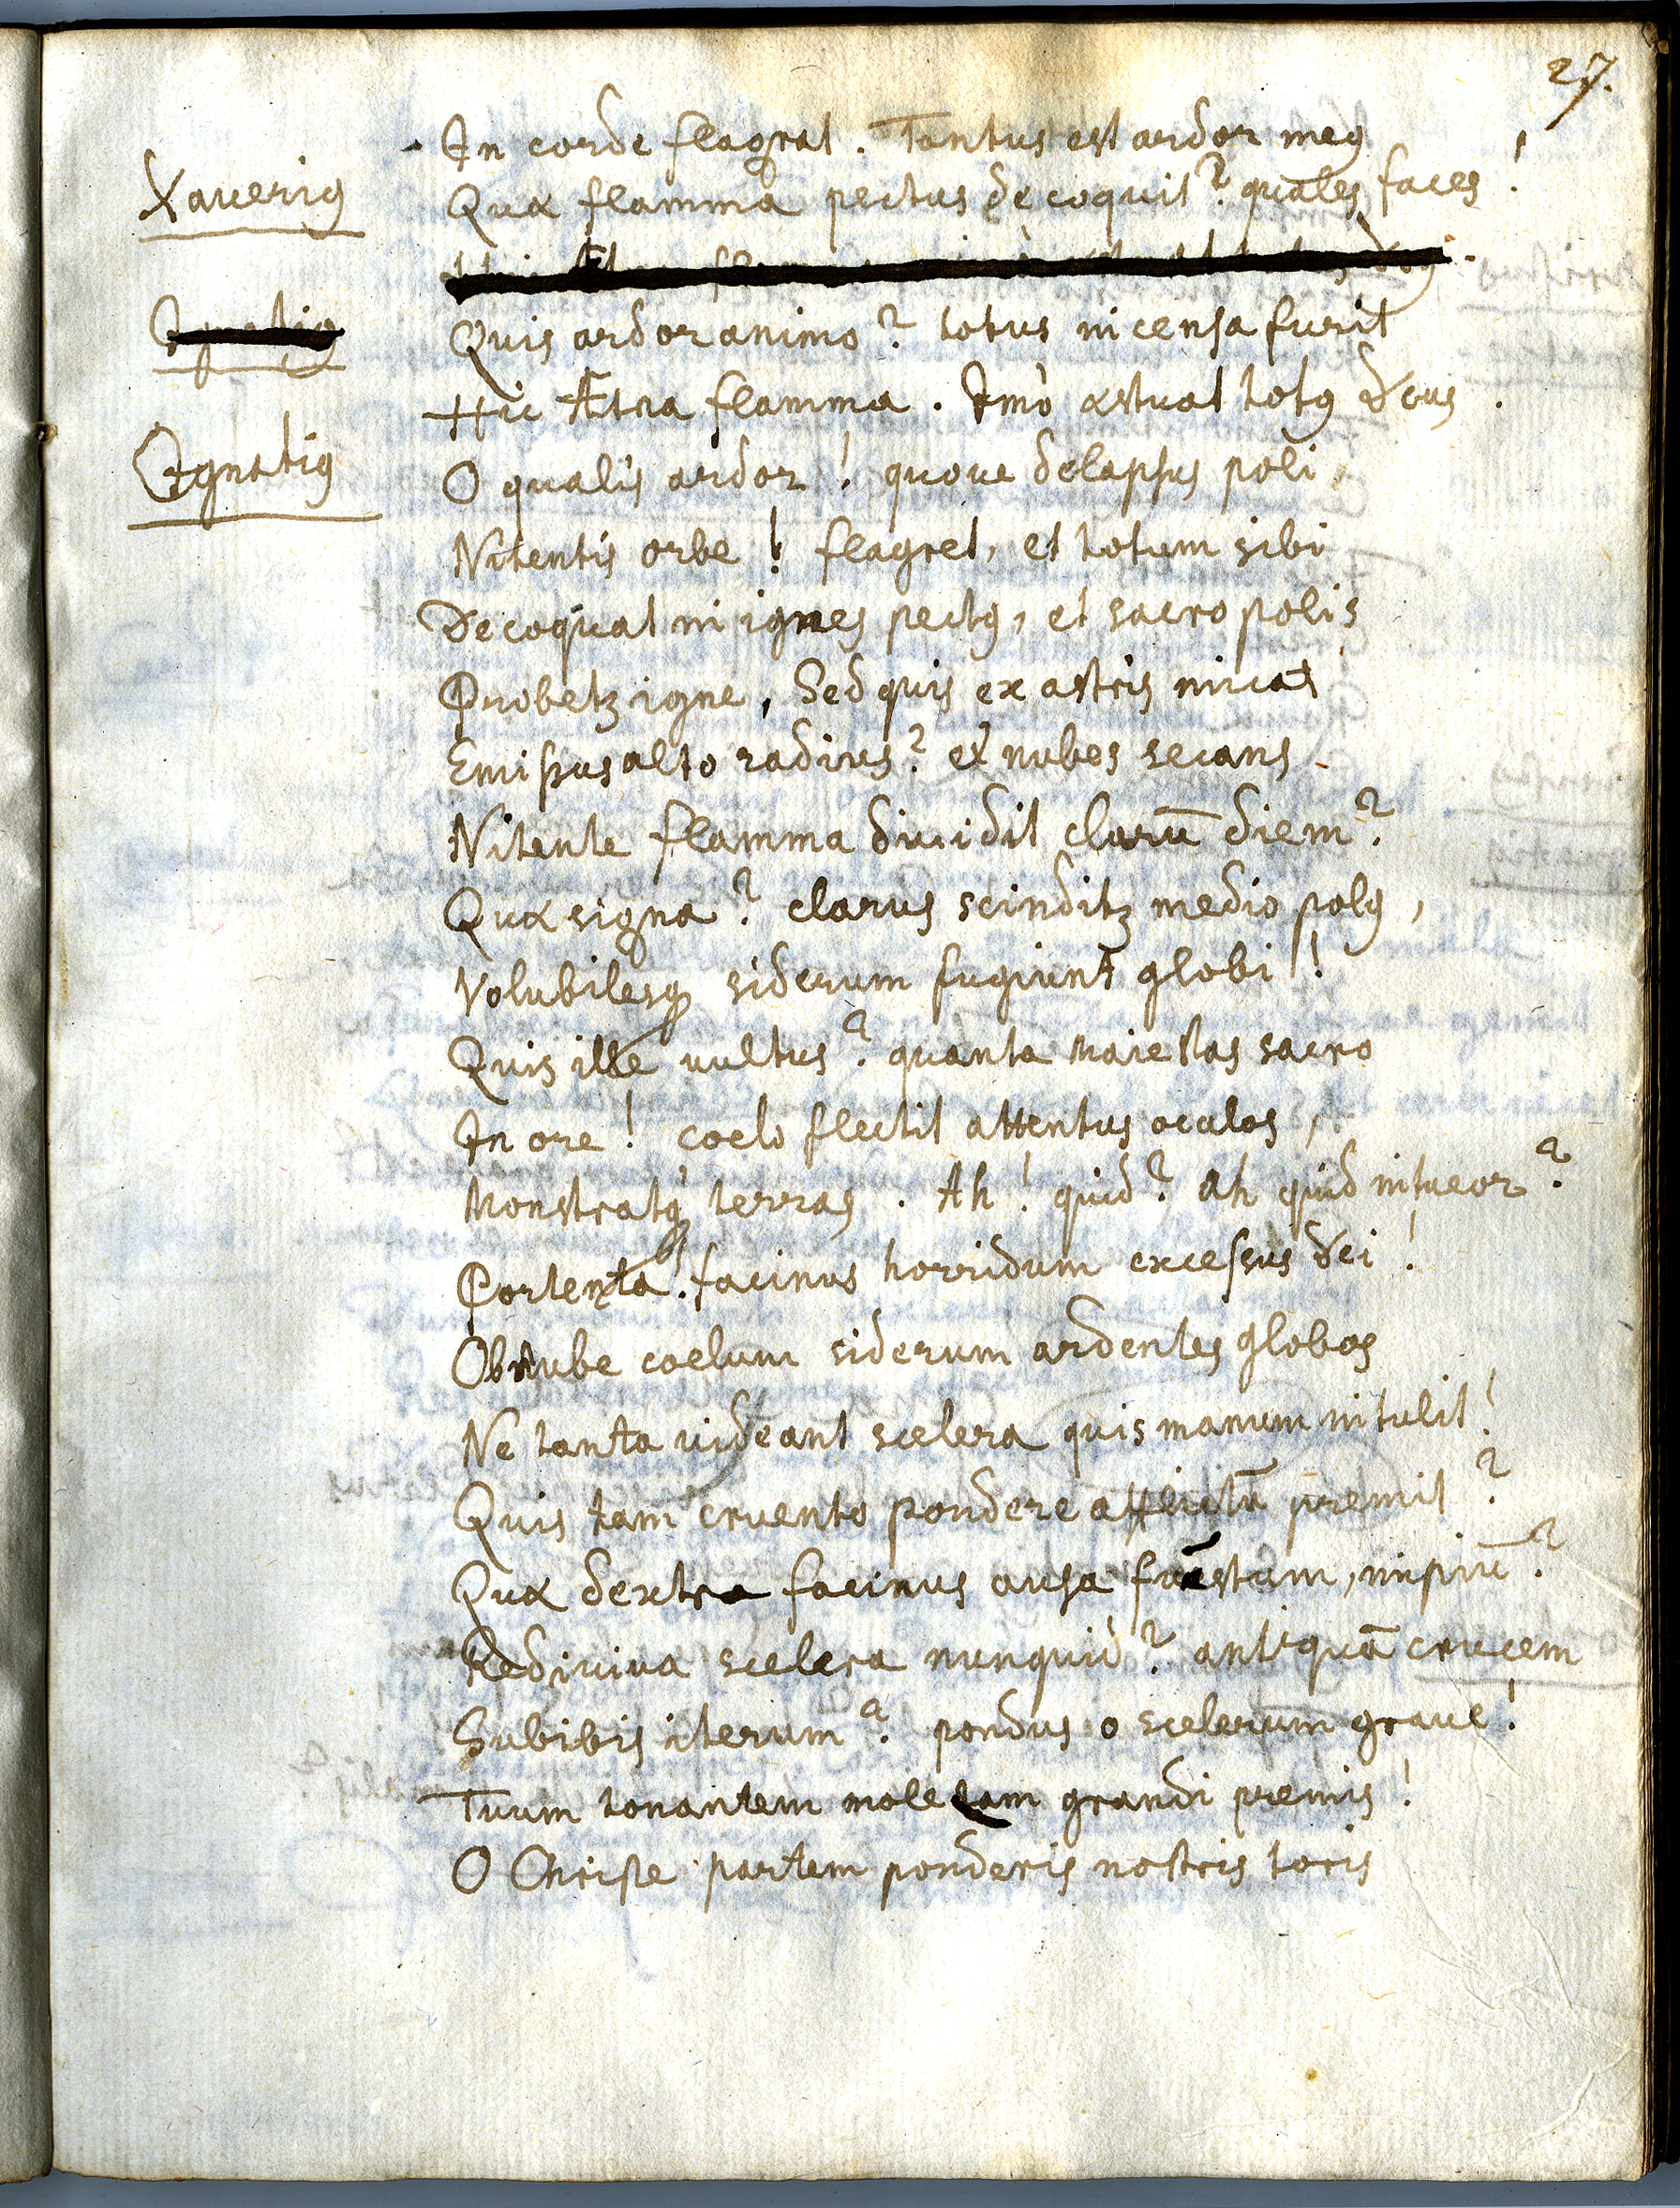 27.
In corde flagrat. Tantus est ardor meꝰ
Xaueriꝰ
Quæ flamma pectus decoquit? quales faces!
Quis ardor animo? totus incensa furit
Hic Ætna flamma. Imò æstuat totꝰ Deus.
Ignatiꝰ
O qualis ardor! quove delapsus poli
Nitentis orbe! flagret, et totum sibi
Decoquat in ignes pectꝰ, et sacro polis
Probetꝫ igne, Sed quis ex astris micat
Emissus alto radius? et nubes secans
Nitente flamma diuidit clarū diem?
Quæ signa? clarus scinditꝫ medio polꝰ,
Volubilesqꝫ siderum fugiunt globi!
Quis ille vultus? quanta Maiestas sacro
In ore! coelo flectit attentus oculos,
Monstratqꝫ terras. Ah! quid? Ah quid intueor?
Portenta! facinus horridum excessus Dei!
Obnube coelum siderum ardentes globos
Ne tanta videant scelera quis manum intulit!
Quis tam cruento pondere afflictū premit?
Quæ dextra facinus ausa funestum, impiū?
Rediuiua scelera nunquid? antiquā crucem
Subibis iterum? pondus o scelerum graue!
Tuum tonantem mole tam grandi premis!
O Christe partem ponderis nostris toris